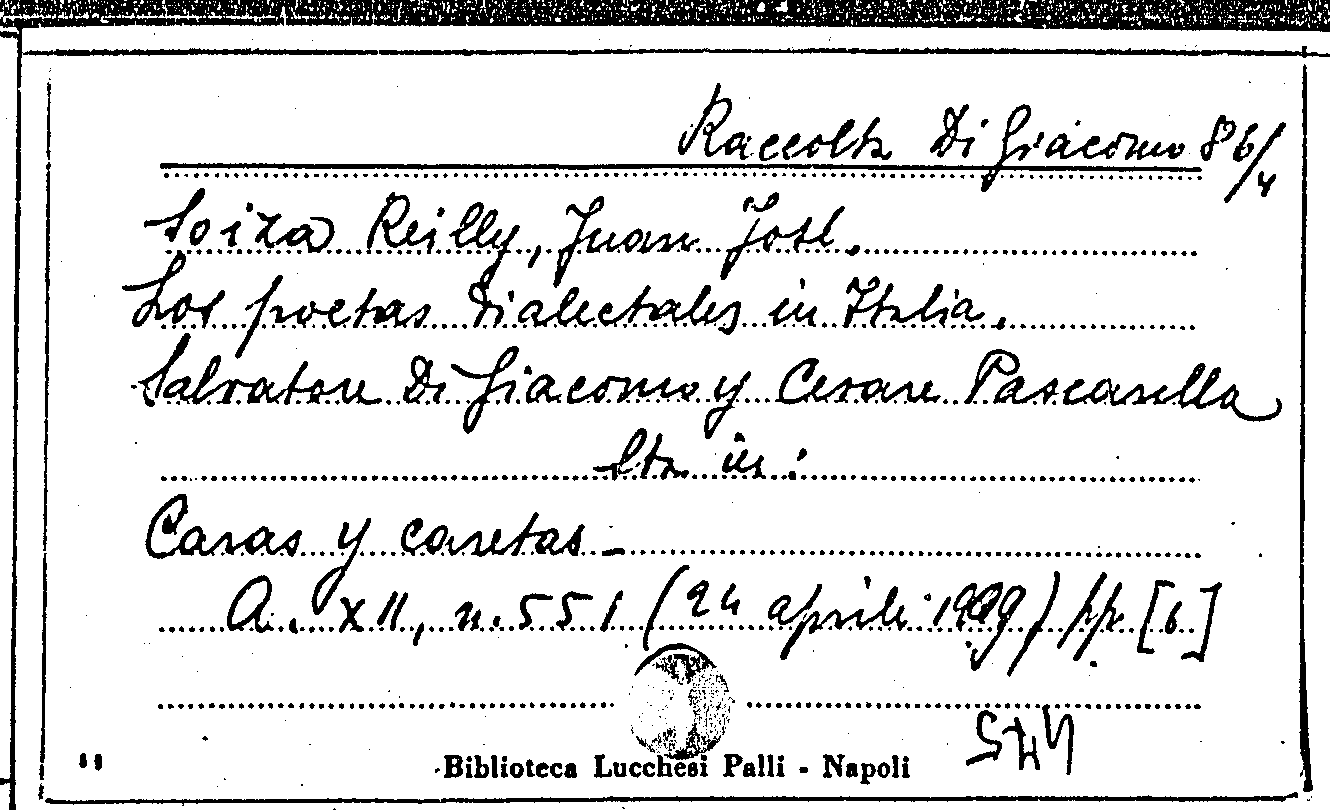 Raccolta Di Giacomo 86/4
Soiza Reilly, Juan José.
Los poetas dialectales in Italia.
Salvatore Di Giacomo y Cesare Pascarella
Sta in:
Caras y caretas -
A. XII, n. 551 (24 aprile 1909) pp. [6]
Biblioteca Lucchesi Palli - Napoli